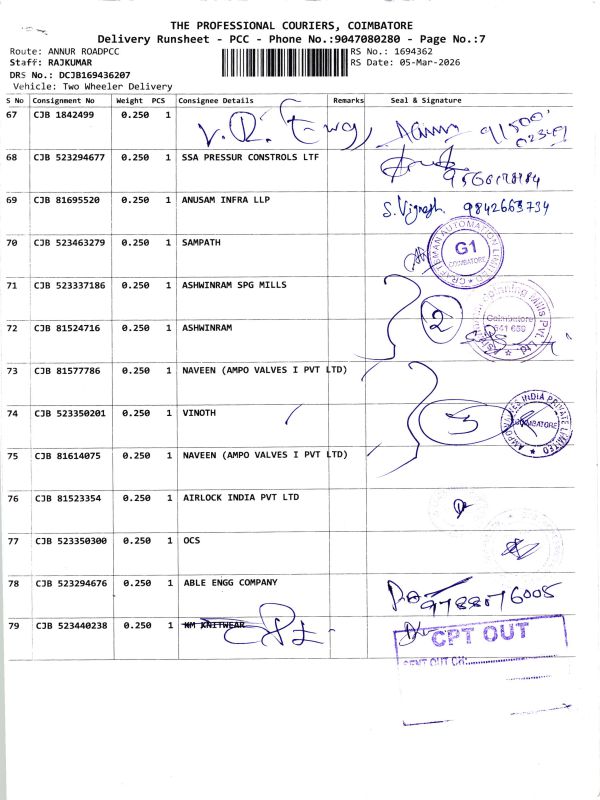 THE PROFESSIONAL COURIERS, COIMBATORE
Delivery Runsheet - PCC - Phone No.:9047080280 - Page No.:7
Route: ANNUR ROADPCC RS No.: 1694362
Staff: RAJKUMAR RS Date: 05-Mar-2026
DRS No.: DCJB169436207
Vehicle: Two Wheeler Delivery
S No Consignment No Weight PCS Consignee Details Remarks Seal & Signature
67 CJB 1842499 0.250 1
68 CJB 523294677 0.250 1 SSA PRESSUR CONSTROLS LTF
69 CJB 81695520 0.250 1 ANUSAM INFRA LLP S. Vignesh 9842663734
70 CJB 523463279 0.250 1 SAMPATH
CRAFTSMAN AUTOMATION LIMITED G1 COIMBATORE
71 CJB 523337186 0.250 1 ASHWINRAM SPG MILLS
72 CJB 81524716 0.250 1 ASHWINRAM 2
Spinning Mills Pvt. Ltd Coimbatore
73 CJB 81577786 0.250 1 NAVEEN (AMPO VALVES I PVT LTD)
74 CJB 523350201 0.250 1 VINOTH 3
AMPO VALVES INDIA PRIVATE LIMITED COIMBATORE
75 CJB 81614075 0.250 1 NAVEEN (AMPO VALVES I PVT LTD)
76 CJB 81523354 0.250 1 AIRLOCK INDIA PVT LTD
77 CJB 523350300 0.250 1 OCS
78 CJB 523294676 0.250 1 ABLE ENGG COMPANY 9788076005
79 CJB 523440238 0.250 1 WM KNITWEAR
CPT OUT
SENT OUT ON: